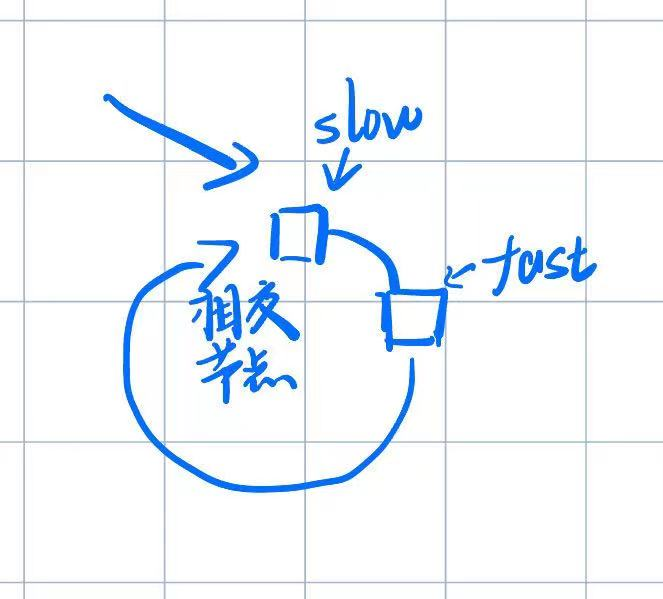 slow
fast
相交
节点